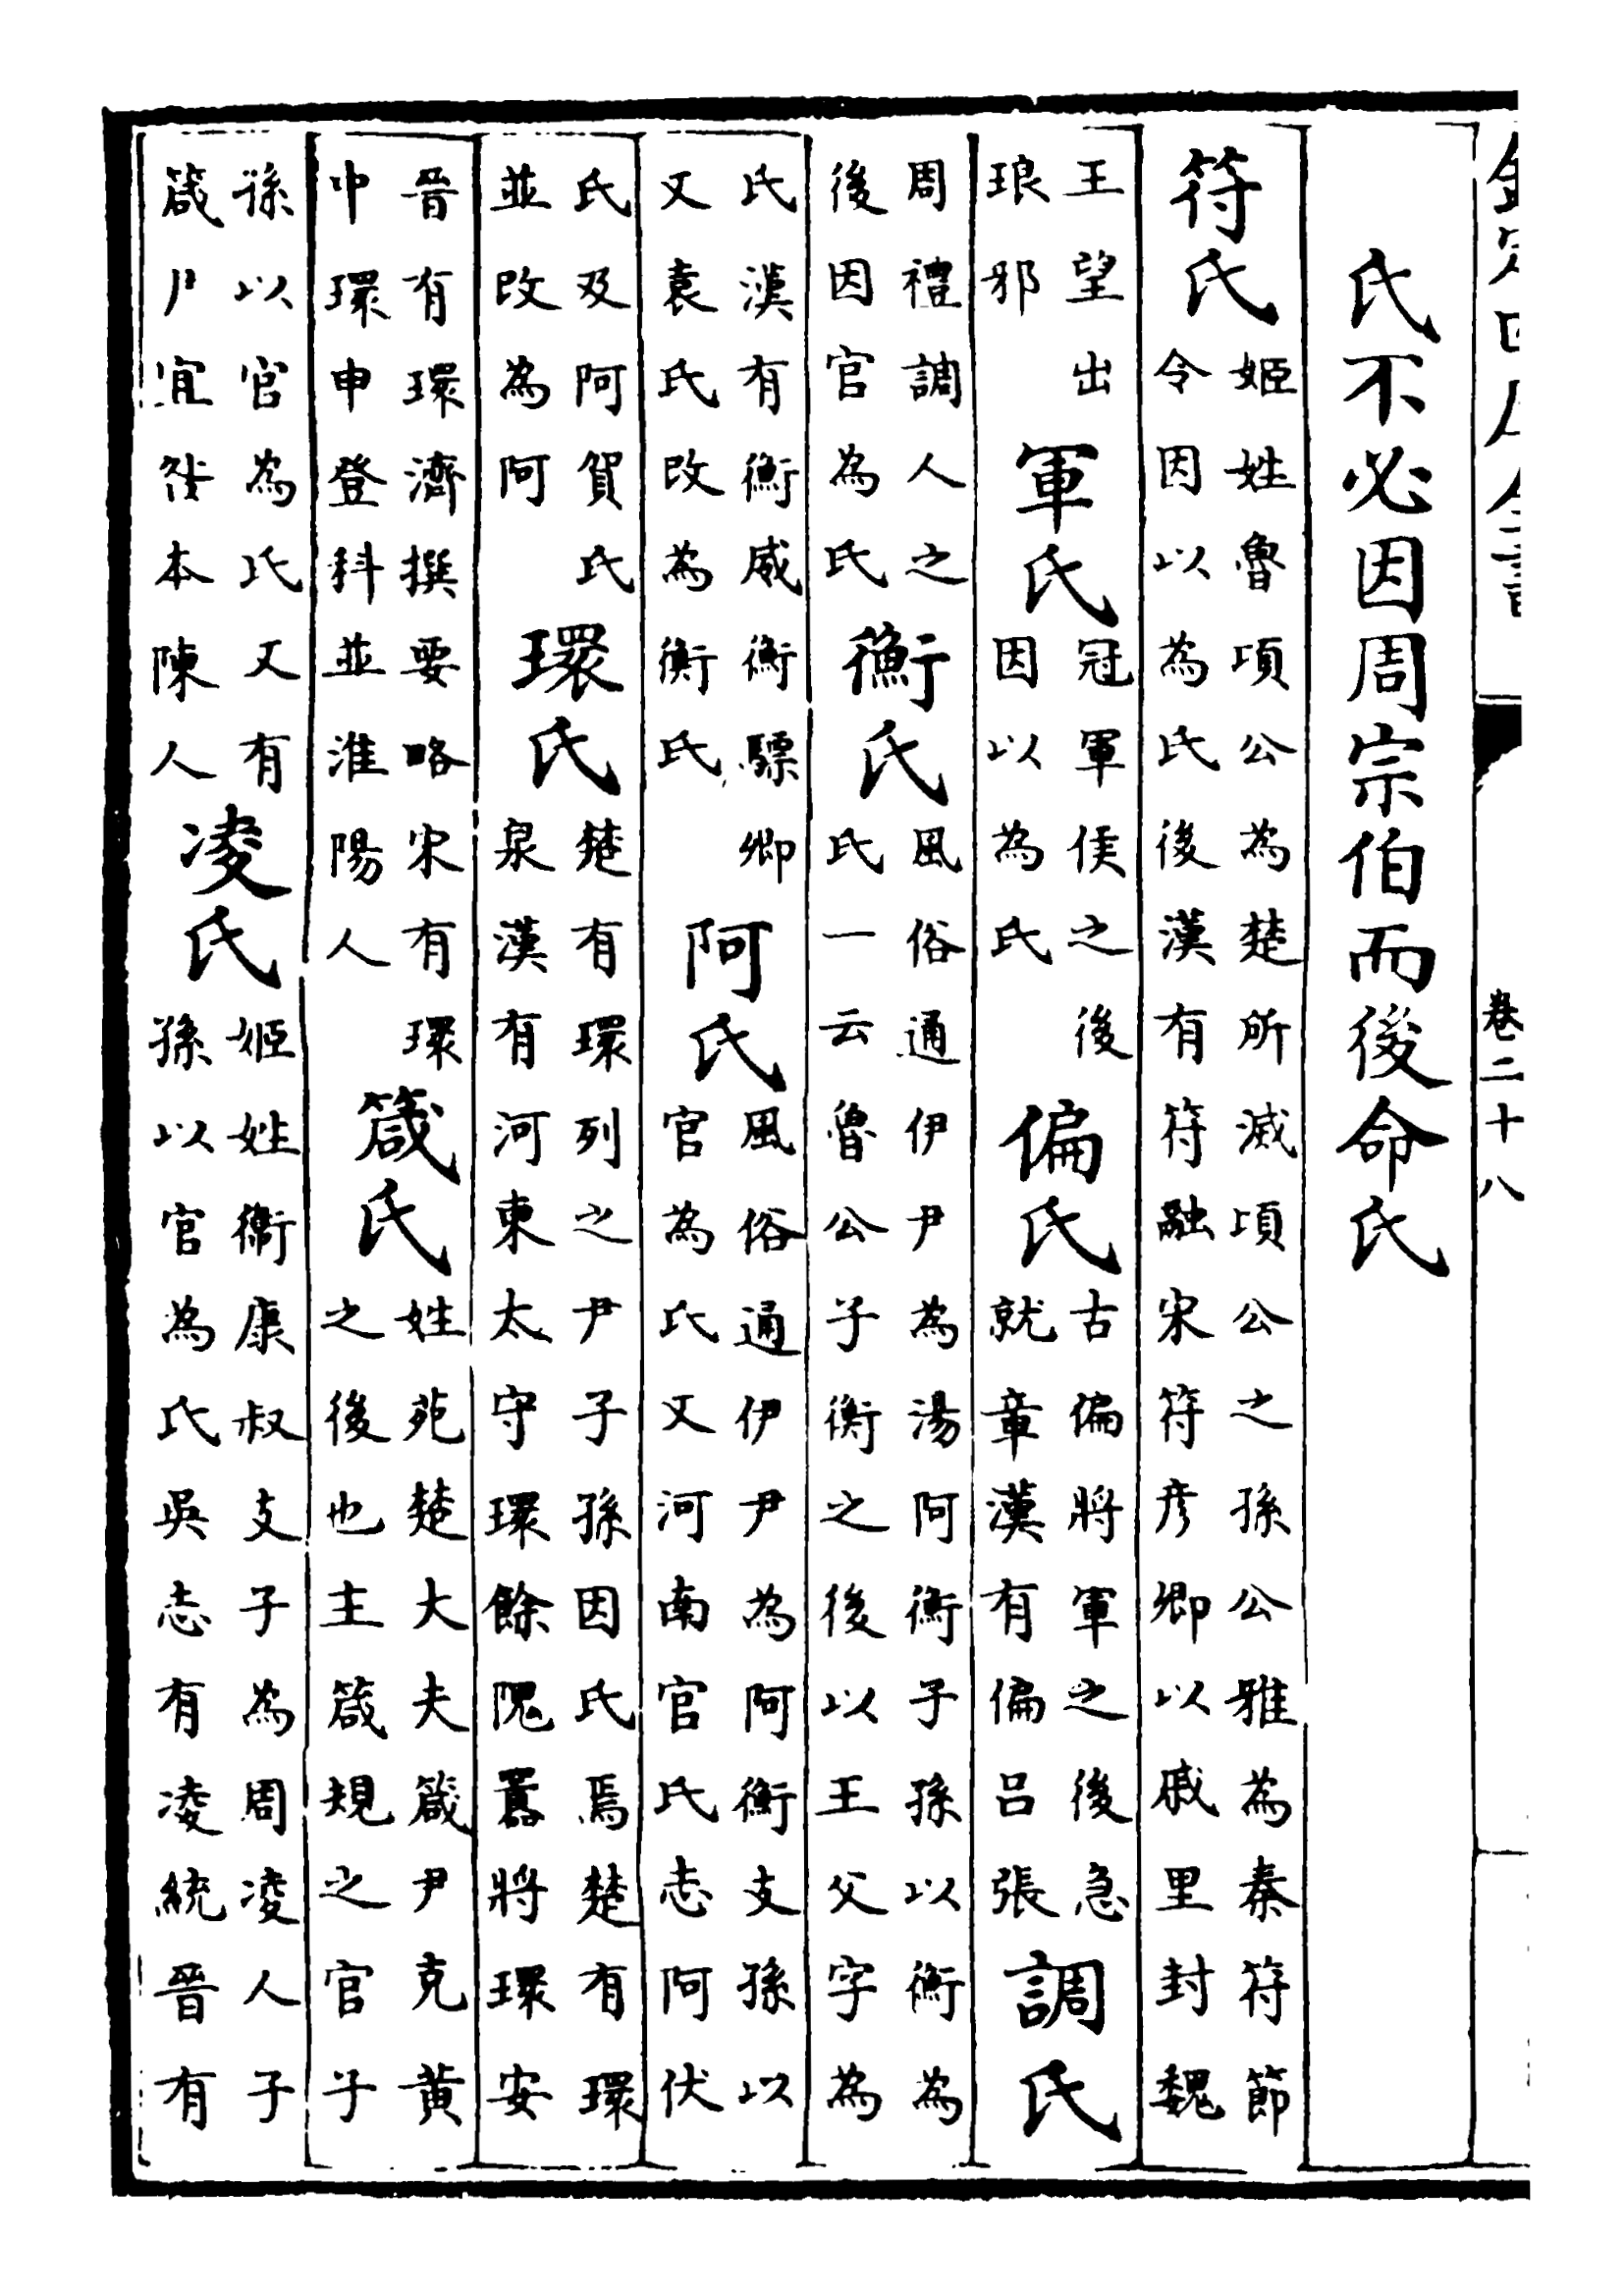 欽定四庫全書 卷二十八
氏不必因周宗伯而後命氏
符氏姬姓魯項公為楚所滅項公之孫公雅為秦符節令因以為氏後漢有符融宋符彦卿以戚里封魏
王望出琅邪 軍氏冠軍侯之後因以為氏 偏氏古偏將軍之後急就章漢有偏呂張 調氏
周禮調人之後因官為氏 衡氏風俗通伊尹為湯阿衡子孫以衡為氏一云魯公子衡之後以王父字為
氏漢有衡威衡驃卿又袁氏改為衡氏 阿氏風俗通伊尹為阿衡支孫以官為氏又河南官氏志阿伏
氏及阿賀氏並改為阿 環氏楚有環列之尹子孫因氏焉楚有環泉漢有河東太守環餘隗囂將環安
晉有環濟撰要略宋有環中環申登科並淮陽人 箴氏姓苑楚大夫箴尹克黄之後也主箴規之官子
孫以官為氏又有箴尹宜咎本陳人 凌氏姬姓衞康叔支子為周凌人子孫以官為氏吳志有凌統晉有